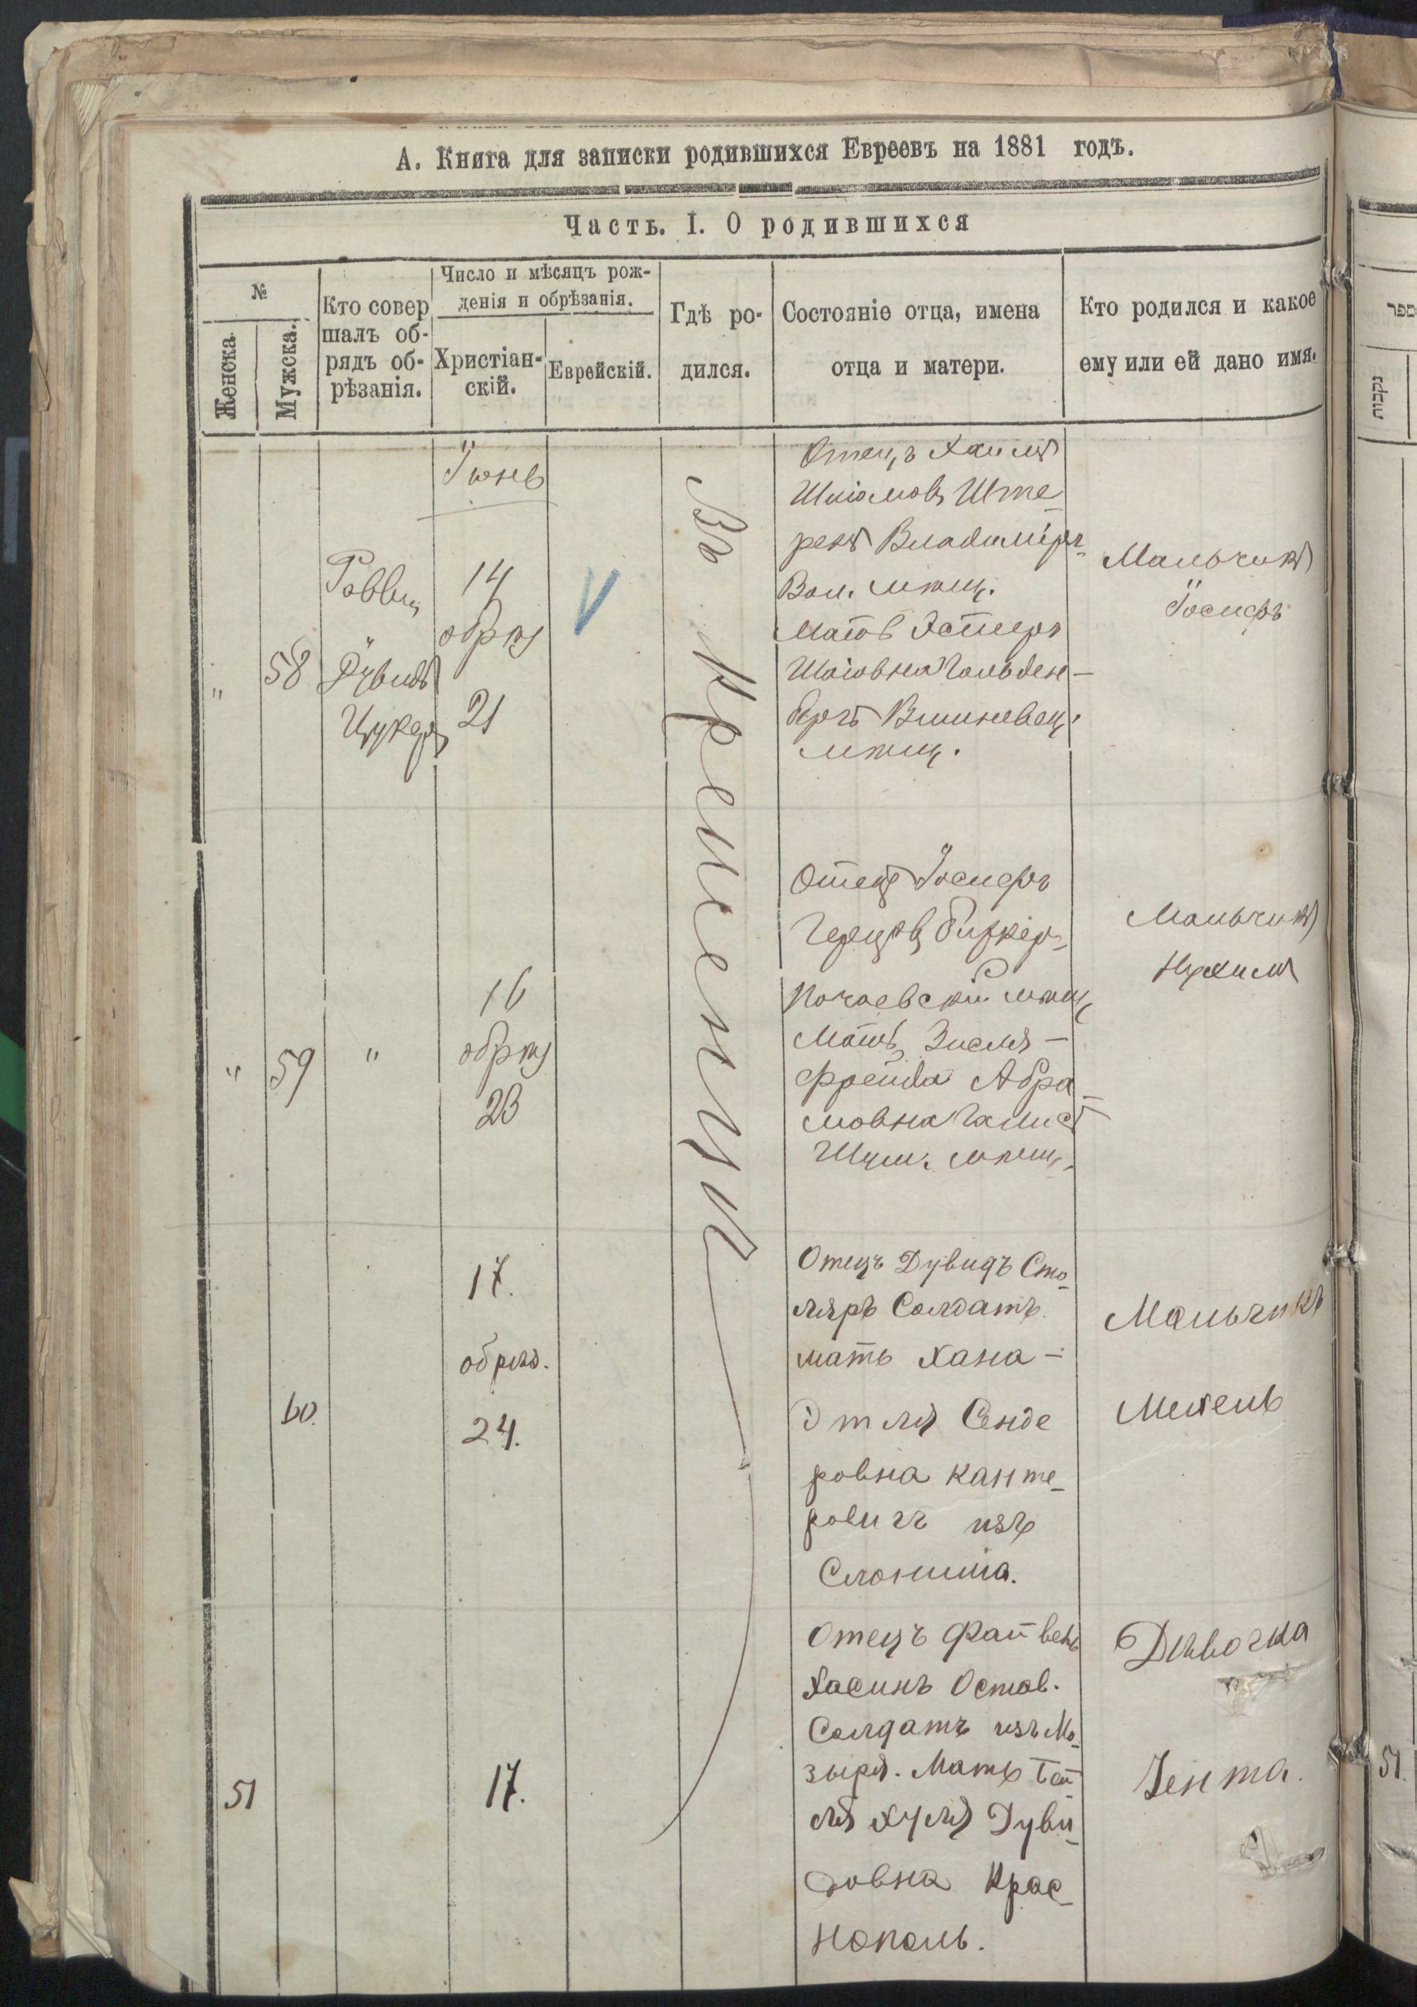 А. Книга для записки родившихся Евреевъ на 1881 годъ.
Часть. I. О родившихся
№
Женска.
Мужска.
Кто совер
шалъ об-
рядъ об-
рѣзанія.
Число и мѣсяцъ рож-
денія и обрѣзанія.
Христіан-
скій.
Еврейскій.
Гдѣ ро-
дился.
Состояніе отца, имена
отца и матери.
Кто родился и какое
ему или ей дано имя.
Іюнь
Въ Кременцѣ
"
58
Раввин
Дувидъ
Цукер
14
обрѣз
21
V
Отецъ Хаимъ
Шліомовъ Ште
ренъ Владимірч
Вол. мѣщ.
Мать Эстеръ
Шаіовна Гольден-
бергъ Вишневец.
мѣщ.
Мальчикъ
Іосифъ
"
59
"
16
обрѣз
23
Отецъ Іосифъ
Почаевскій мѣщ
Мать Зисля-
Фрейда Абра
мовна
Шум. мѣщ.
Мальчикъ
Нухимъ
60.
17.
обрез.
24.
Отецъ Дувидъ Сто-
ляръ Солдатъ
мать Хана-
Этля Сенде
ровнаКанте-
ровичъ изъ
Слонима.
Мальчикъ
51
17.
Отецъ Файвель
Хасинъ Остав.
Солдатъ изъ Мо-
зыря. Мать Бей
ля Хуля Дуви-
довна Крас-
нополь.
Дѣвочка
Зента.
ספר
נקבות
51.